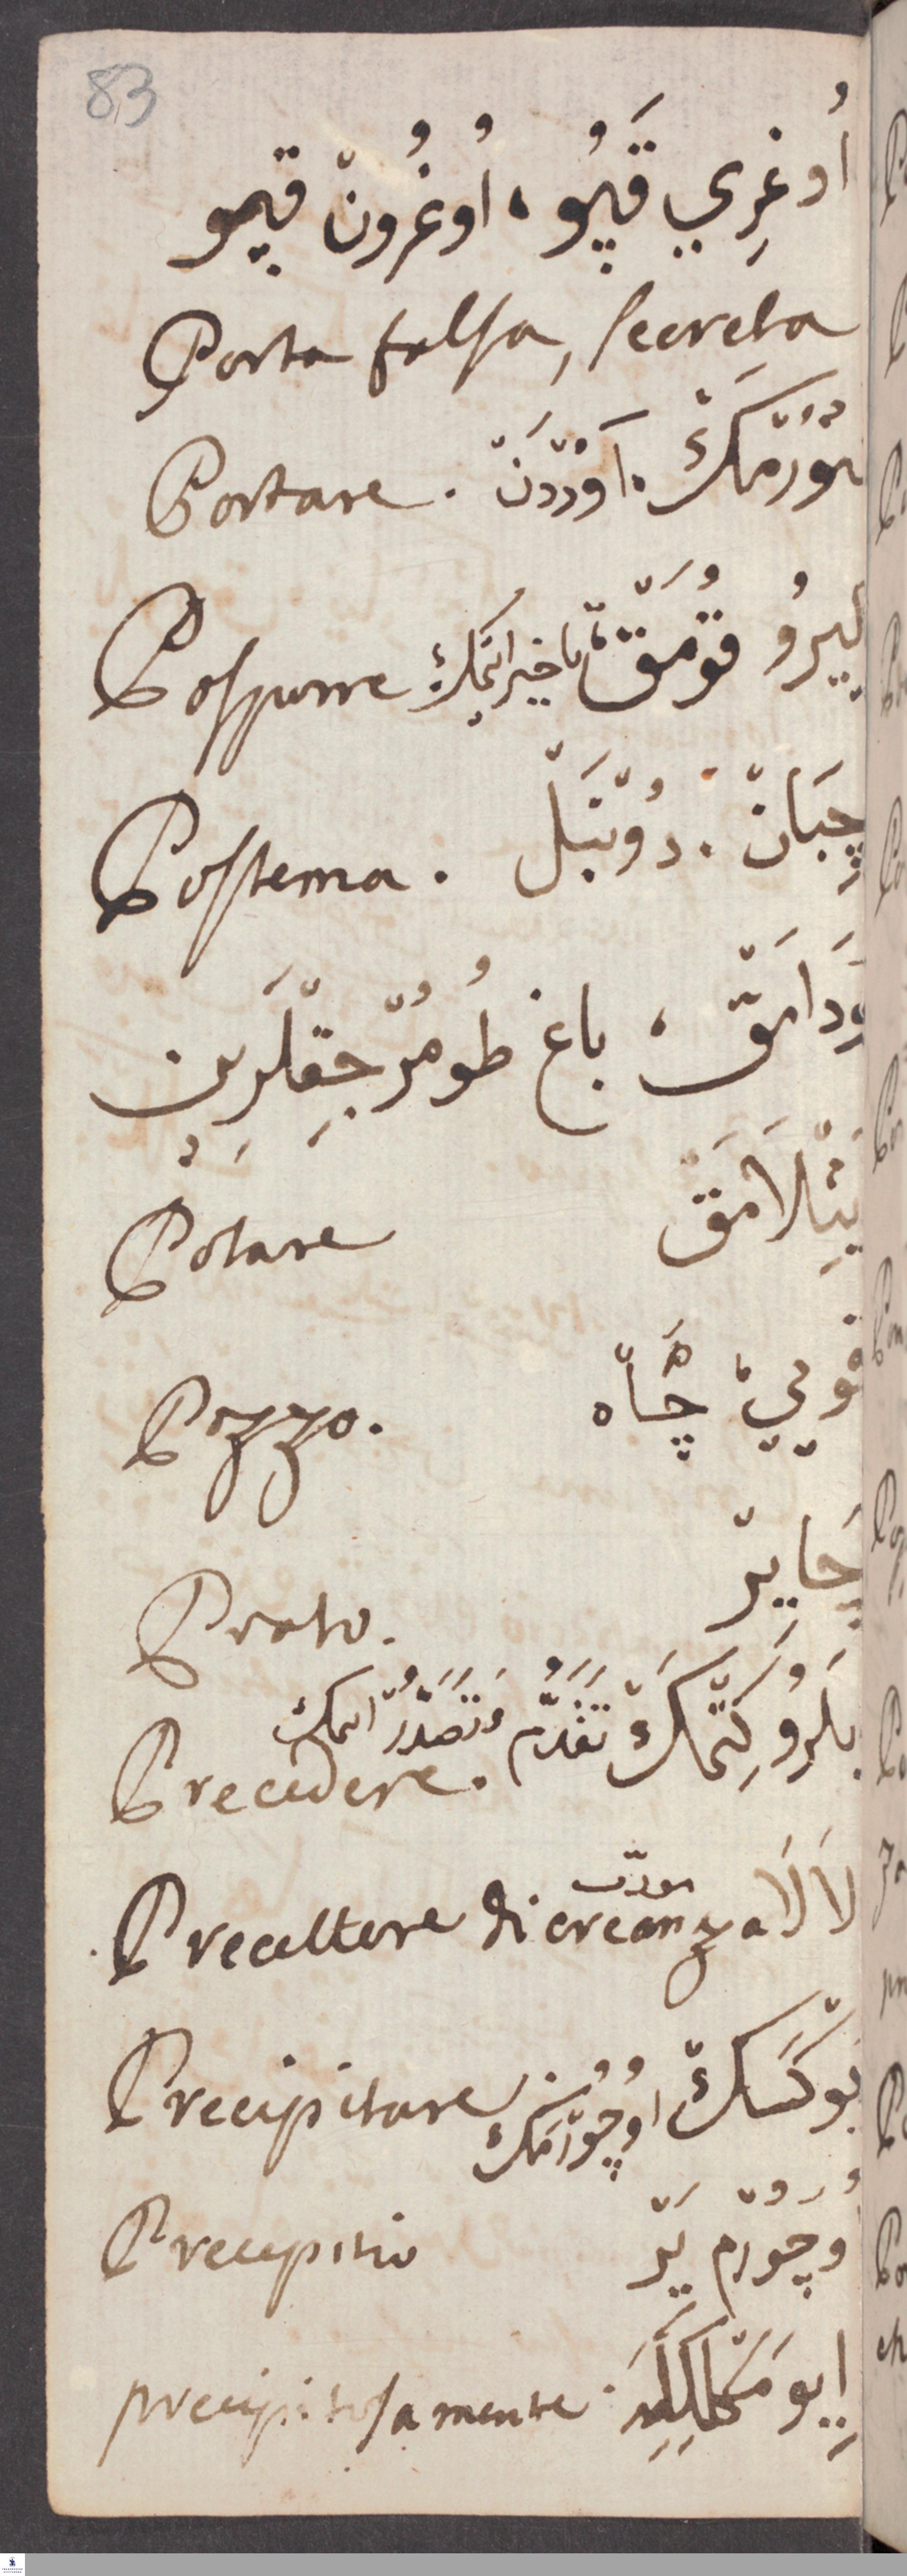 83
اُوغرِي قَپُو، اُوغرُونْ قپو
Porta falsa, secreta
Portare. كوتُرمَكْ.
Posporre گيرُو قُومَقْ تاخير ايتمك
Postema. چِبَانْ. دُونْبَلْ
بُودَامَقْ، باغ طُومُرْجِقْلَرِين
Potare
Pozzo. قويِي، چَاهْ
Prato. چَايِرْ
Precedere. اِيلَرُو كِتْمَكْ تَقَدُّمْ وَتَصَدُّرْ اتمك
Precettore di creanza لَالَا مودّب
Precipitare اوچُورْمَكْ
Precipitio اُوچُورُمْ يَرْ
precipitosamente.